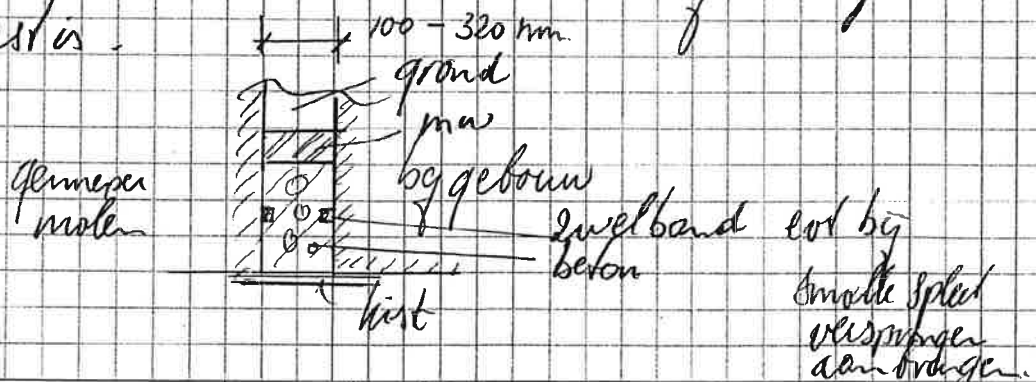 st is.
100 - 320 mm.
grond
pur
bijgebouw
genneper
molen
zwelband evt bij
beton
smalle spleet
verspringen
aanbrengen.
kist